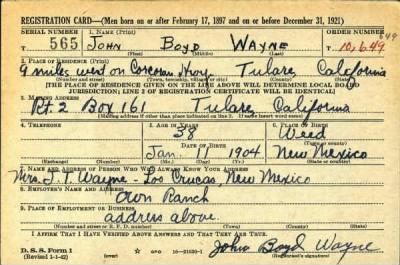 REGISTRATION CARD—(Men born on or after February 17, 1897 and on or before December 31, 1921)
SERIAL NUMBER 1. NAME (Print) ORDER NUMBER
565 John Boyd Wayne 10,649
(First) (Middle) (Last)
2. PLACE OF RESIDENCE (Print)
9 miles west on Corcoran Hwy Tulare California
(Number and street) (Town, township, village, or city) (County) (State)
[THE PLACE OF RESIDENCE GIVEN ON THE LINE ABOVE WILL DETERMINE LOCAL BOARD
JURISDICTION; LINE 2 OF REGISTRATION CERTIFICATE WILL BE IDENTICAL]
3. MAILING ADDRESS
Rt. 2 Box 161 Tulare, California
[Mailing address if other than place indicated on line 2. If same insert word same]
4. TELEPHONE 5. AGE IN YEARS 6. PLACE OF BIRTH
38 Weed
DATE OF BIRTH (Town or county)
Jan. 11 1904 New Mexico
(Exchange) (Number) (Mo.) (Day) (Yr.) (State or country)
7. NAME AND ADDRESS OF PERSON WHO WILL ALWAYS KNOW YOUR ADDRESS
Mrs. J. T. Wayne - Los Cruces, New Mexico
8. EMPLOYER'S NAME AND ADDRESS
Own Ranch
9. PLACE OF EMPLOYMENT OR BUSINESS
address above.
(Number and street or R. F. D. number) (Town) (County) (State)
I AFFIRM THAT I HAVE VERIFIED ABOVE ANSWERS AND THAT THEY ARE TRUE.
D. S. S. Form 1 16—21630-1 John Boyd Wayne
(Revised 1-1-42) (over) (Registrant's signature)